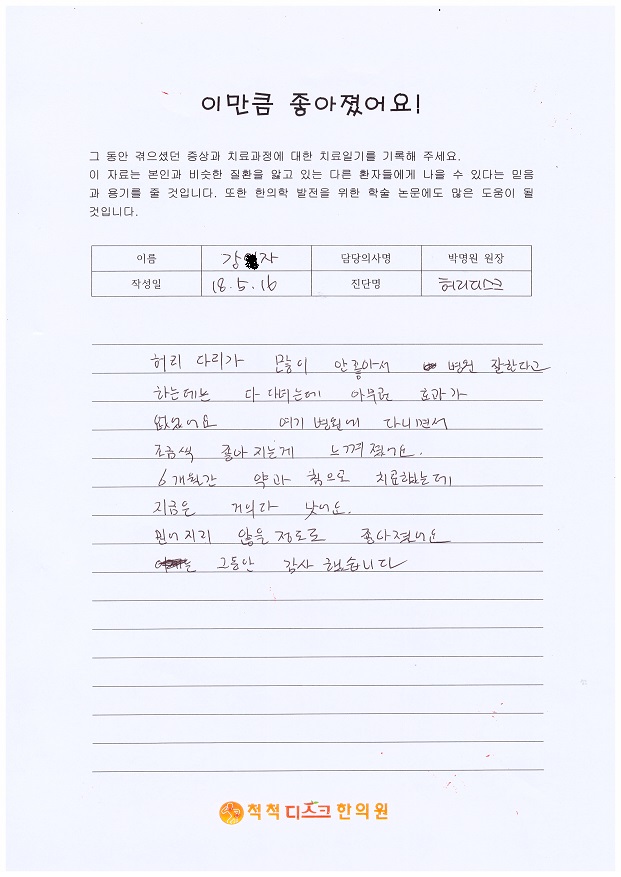 이만큼 좋아졌어요!
그 동안 겪으셨던 증상과 치료과정에 대한 치료일기를 기록해 주세요.
이 자료는 본인과 비슷한 질환을 앓고 있는 다른 환자들에게 나을 수 있다는 믿음
과 용기를 줄 것입니다. 또한 한의학 발전을 위한 학술 논문에도 많은 도움이 될
것입니다.
이름 강 자 담당의사명 박명원 원장
작성일 18.5.16 진단명 허리디스크
허리 다리가 많이 안좋아서 병원 잘한다고
하는데는 다 다녀는데 아무런 효과가
없었어요 여기 병원에 다니면서
조금씩 좋아지는게 느껴졌어요.
6개월간 약과 침으로 치료했는데
지금은 거의다 낫어요.
믿어지리 않을정도로 좋아졌어요
그동안 감사했습니다
척척디스크한의원